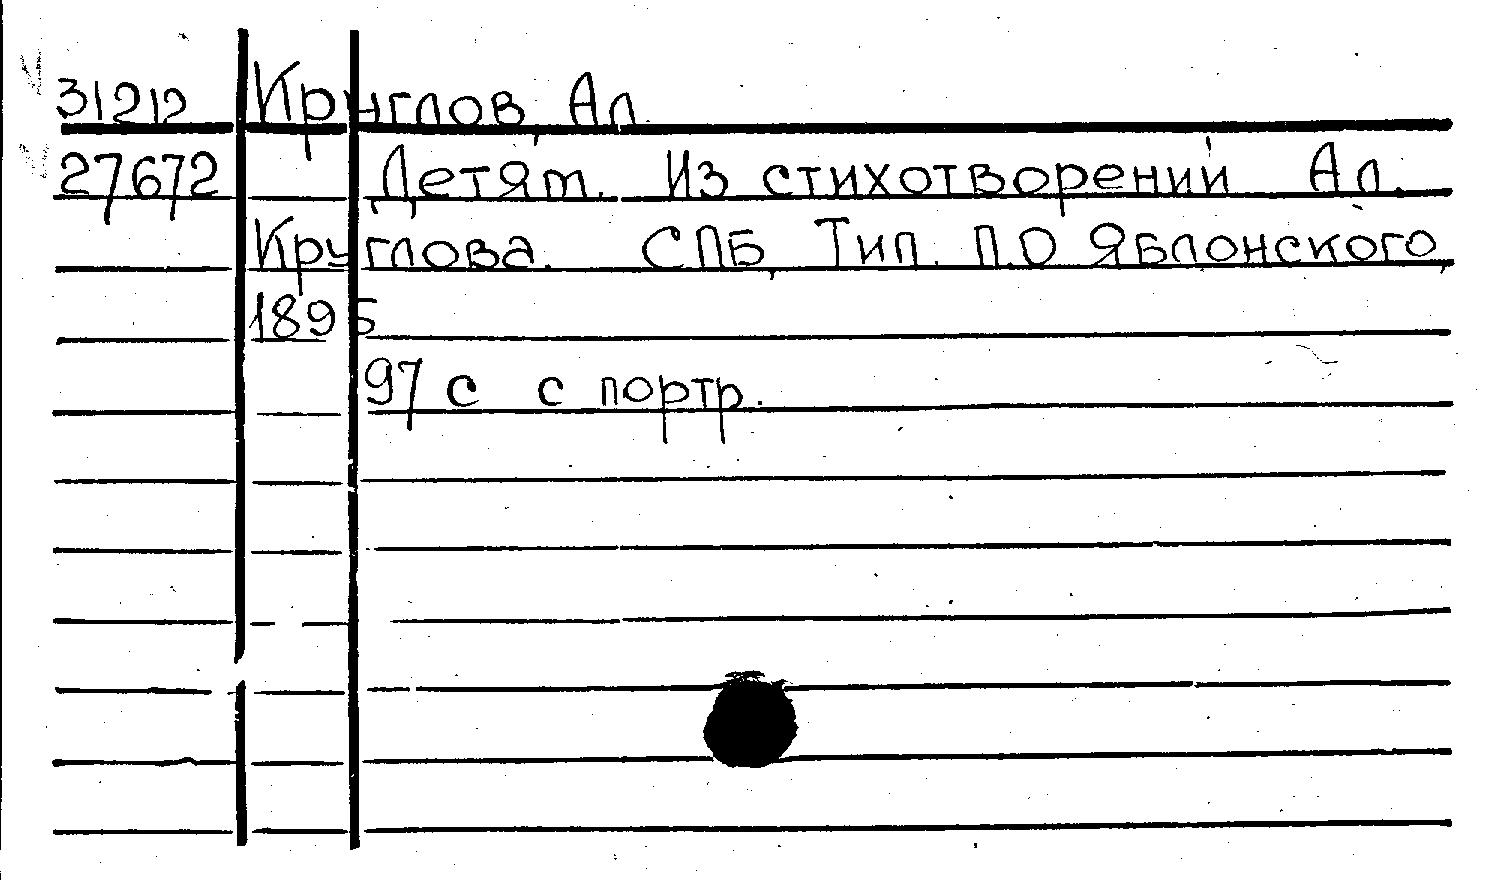 31212 Круглов, Ал.
27672 Детям. Из стихотворений Ал.
Круглова. СПБ, Тип. П.О Яблонского,
1895
97 с с портр.